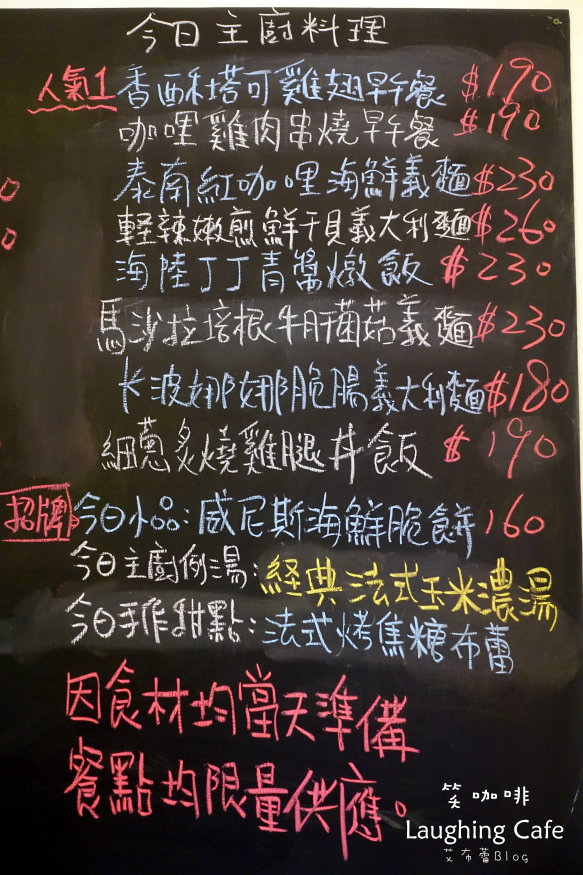 今日主廚料理
人氣1 香酥塔可雞翅早午餐 $190
咖哩雞肉串燒早午餐 $190
泰南紅咖哩海鮮義麵 $230
輕辣嫩煎鮮干貝義大利麵 $260
海陸丁丁青醬燉飯 $230
馬沙拉培根牛肝菌菇義麵 $230
长波娜娜脆腸義大利麵 $180
細蔥炙燒雞腿丼飯 $190
招牌 今日小品:威尼斯海鮮脆餅 160
今日主廚例湯:経典法式玉米濃湯
今日手作甜點:法式烤焦糖布蕾
因食材均當天準備
餐點均限量供應。
笑咖啡
Laughing Cafe
艾布蕾Blog